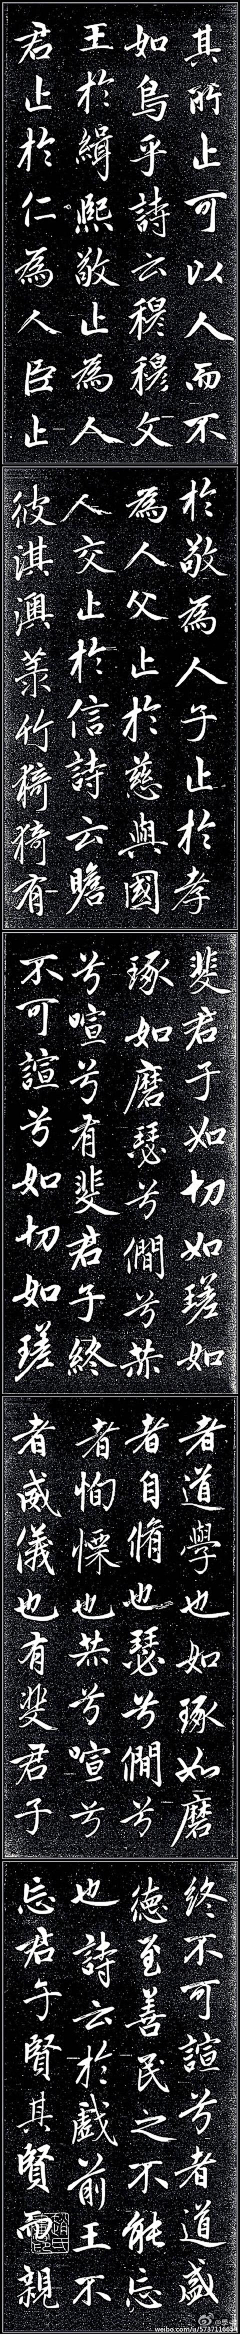 其所止可以人而不
如鳥乎詩云穆穆文
王於緝熙敬止為人
君止於仁為人臣止
於敬為人子止於孝
為人父止於慈與國
人交止於信詩云瞻
彼淇澳菉竹猗猗有
斐君子如切如瑳如
琢如磨瑟兮僩兮赫
兮喧兮有斐君子終
不可諠兮如切如瑳
者道學也如琢如磨
者自脩也瑟兮僩兮
者恂慄也赫兮喧兮
者威儀也有斐君子
終不可諠兮者道盛
德至善民之不能忘
也詩云於戲前王不
忘君子賢其賢而親